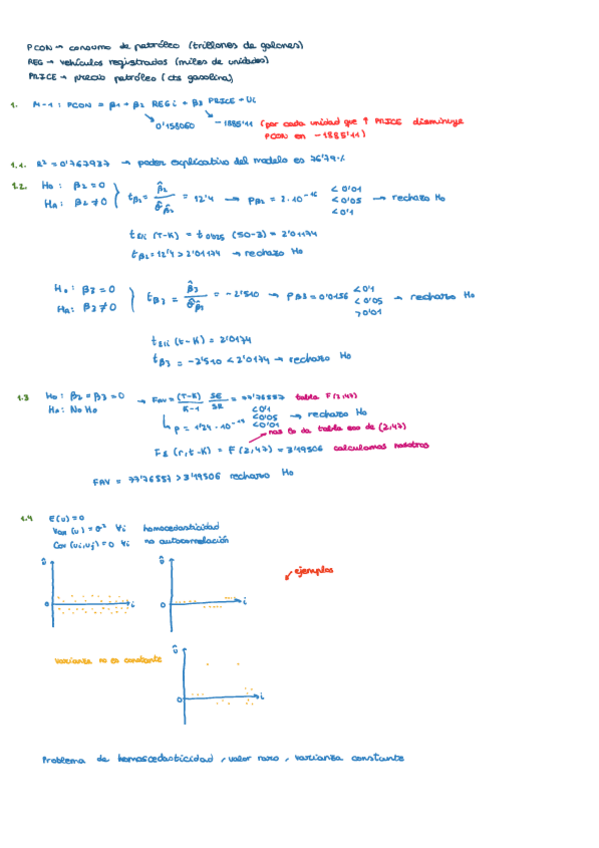 PCON → consumo de petróleo (trillones de galones)
REG → vehículos registrados (miles de unidades)
PRICE → precio petróleo (cts gasolina)
1. M-1: PCON = β1 + β2 REGi + β3 PRICE + Ui
0'158060 -1885'11 (por cada unidad que ↑ PRICE disminuye
PCON en -1885'11)
1.1. R² = 0'767937 → poder explicativo del modelo es 76'79%
1.2. Ho: β2 = 0
HA: β2 ≠ 0 } tβ2 = β̂2 / σ̂β̂2 = 12'4 → Pβ2 = 2·10⁻¹⁶ <0'01 <0'05 <0'1 → rechazo Ho
tε/2 (T-K) = t0'025 (50-3) = 2'01174
tβ2 = 12'4 > 2'01174 → rechazo Ho
Ho: β3 = 0
HA: β3 ≠ 0 } tβ3 = β̂3 / σ̂β̂3 = -2'510 → Pβ3 = 0'0156 <0'1 <0'05 >0'01 → rechazo Ho
tε/2 (t-K) = 2'0174
tβ3 = -2'510 < 2'0174 → rechazo Ho
1.3 Ho: β2 = β3 = 0 → FAV = (T-K)/K-1 SE/SR = 77'76557 tabla F(2,47)
HA: No Ho
P = 1'24·10⁻¹⁴ <0'1 <0'05 <0'01 → rechazo Ho
nos lo da tabla eso de (2,47)
Fε (r, t-K) = F (2,47) = 3'19506 calculamos nosotros
FAV = 77'76557 > 3'19506 rechazo Ho
1.4 E(u) = 0
Var (u) = σ² ∀i homocedasticidad
Cov (ui, uj) = 0 ∀i no autocorrelación
û û
ejemplos
0 i 0 i
varianza no es constante
û
0 i
Problema de homoscedasticidad, valor raro, varianza constante